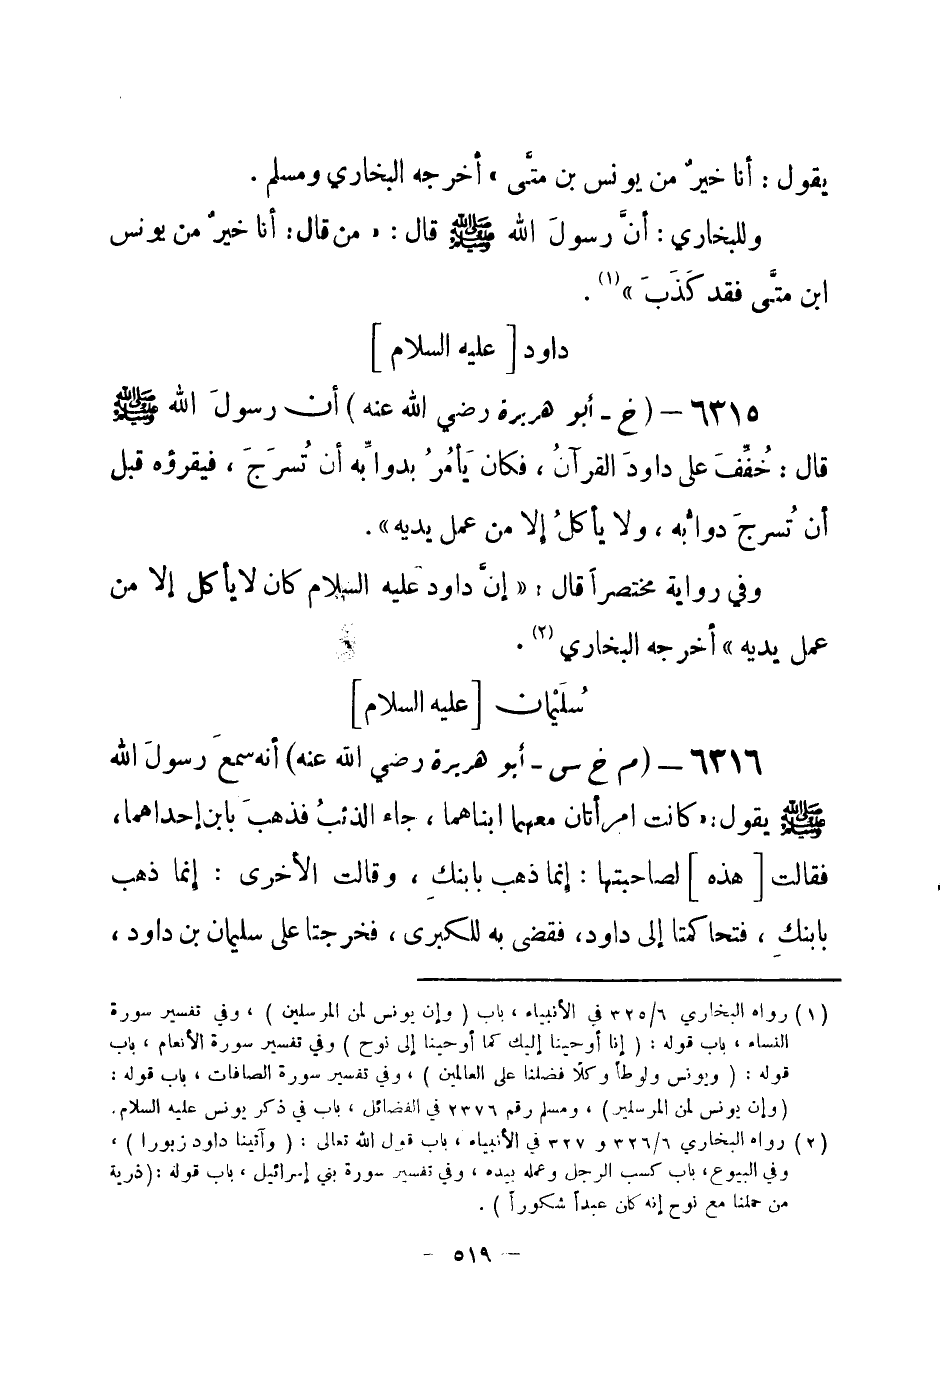 يقول : أنا خيرٌ من يونس بن متَّى » أخرجه البخاري ومسلم .
وللبخاري : أنَّ رسولَ الله ﷺ قال : « من قال: أنا خيرٌ من يونس
ابن متَّى فقد كَذَبَ »(١) .
داود [ عليه السلام ]
٦٣١٥ – ( خ - أبو هريرة رضي الله عنه ) أن رسولَ الله ﷺ
قال : خُفِّفَ على داودَ القرآنُ ، فكان يَأمُرُ بدوابِّه أن تُسرَجَ ، فيقرؤه قبل
أن تُسرجَ دوابُّه ، ولا يأكلُ إلا من عمل يديه ».
وفي رواية مختصراً قال : « إنَّ داود عليه السلام كان لا يأكل إلا من
عمل يديه » أخرجه البخاري (٢) .
سُلَيْمان [ عليه السلام ]
٦٣١٦ – ( م خ س - أبو هريرة رضي الله عنه ) أنه سمعَ رسولَ الله
ﷺ يقول: « كانت امرأتان معهما ابناهما ، جاء الذئبُ فذهبَ بابن إحداهما،
فقالت [ هذه ] لصاحبتها : إنما ذهب بابنكِ ، وقالت الأخرى : إنما ذهب
بابنكِ ، فتحاكمتا إلى داود، فقضى به للكبرى ، فخرجتا على سليمان بن داود ،
(١) رواه البخاري ٣٢٥/٦ في الأنبياء ، باب ( وإن يونس لمن المرسلين ) ، وفي تفسير سورة
النساء ، باب قوله : ( إنا أوحينا إليك كما أوحينا إلى نوح ) وفي تفسير سورة الأنعام ، باب
قوله : ( ويونس ولوطاً وكلا فضلنا على العالمين ) ، وفي تفسير سورة الصافات ، باب قوله :
(وإن يونس لمن المرسلين ) ، ومسلم رقم ٢٣٧٦ في الفضائل ، باب في ذكر يونس عليه السلام.
(٢) رواه البخاري ٣٢٦/٦ و ٣٢٧ في الأنبياء ، باب قول الله تعالى : ( وآتينا داود زبورا ) ،
وفي البيوع، باب كسب الرجل وعمله بيده ، وفي تفسير سورة بني إسرائيل ، باب قوله :(ذرية
من حملنا مع نوح إنه كان عبداً شكوراً ) .
– ٥١٩ –